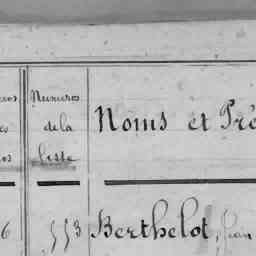 Numéros
de la
liste
Noms et Pré
6
553
Berthelot, Jean